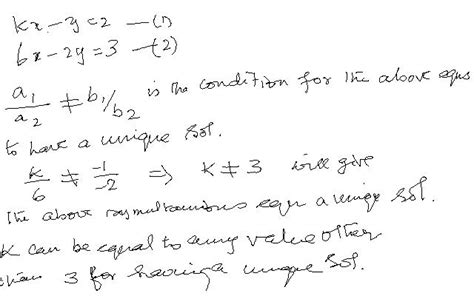 kx - y = 2 — (1)
6x - 2y = 3 — (2)
a₁/a₂ ≠ b₁/b₂ is the condition for the above eqns
to have a unique sol.
k/6 ≠ -1/-2 ⇒ k ≠ 3 will give
the above simultaneous eqn a unique sol.
k can be equal to any value other
than 3 for having a unique sol.